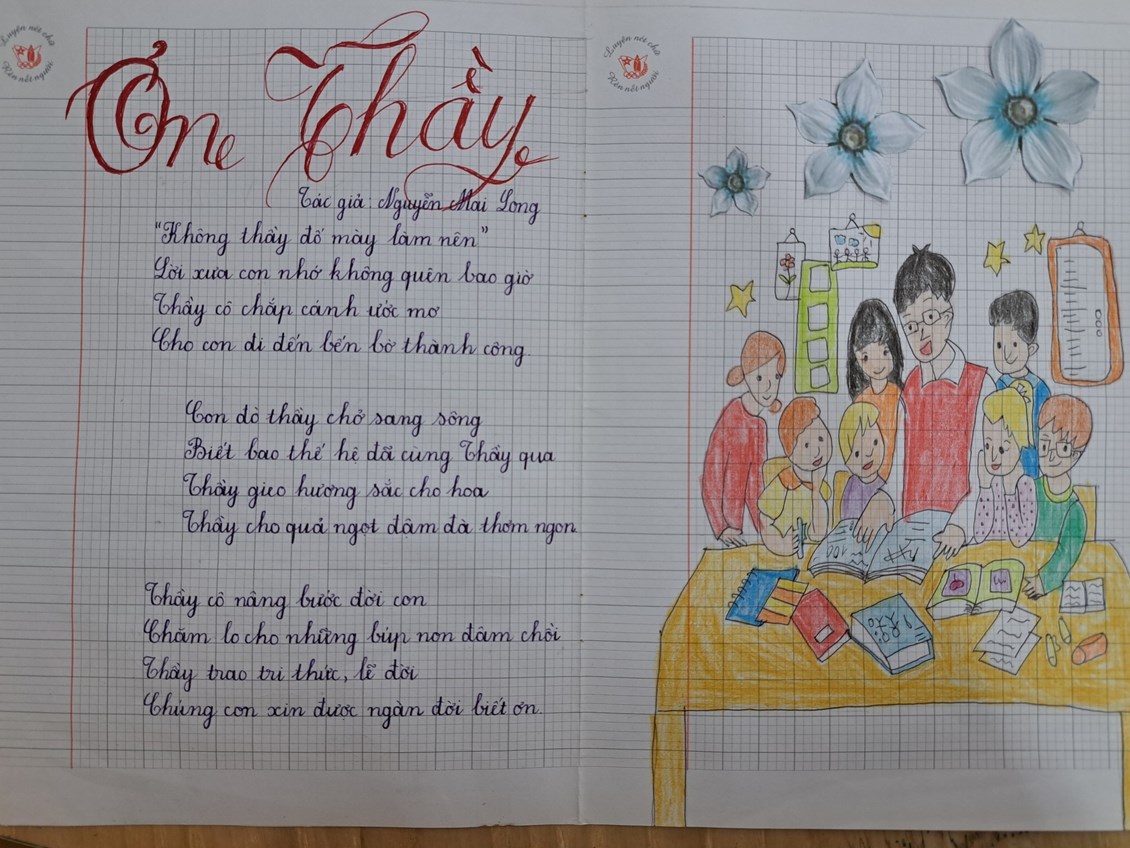 Luyện nét chữ
Rèn nết người
Ơn Thầy
Tác giả: Nguyễn Mai Long
"Không thầy đố mày làm nên"
Lời xưa con nhớ không quên bao giờ
Thầy cô chắp cánh ước mơ
Cho con đi đến bến bờ thành công.
Con đò thầy chở sang sông
Biết bao thế hệ đã cùng Thầy qua
Thầy gieo hương sắc cho hoa
Thầy cho quả ngọt đậm đà thơm ngon
Thầy cô nâng bước đời con
Chăm lo cho những búp non đâm chồi
Thầy trao tri thức, lẽ đời
Chúng con xin được ngàn đời biết ơn.
Luyện nét chữ
Rèn nết người